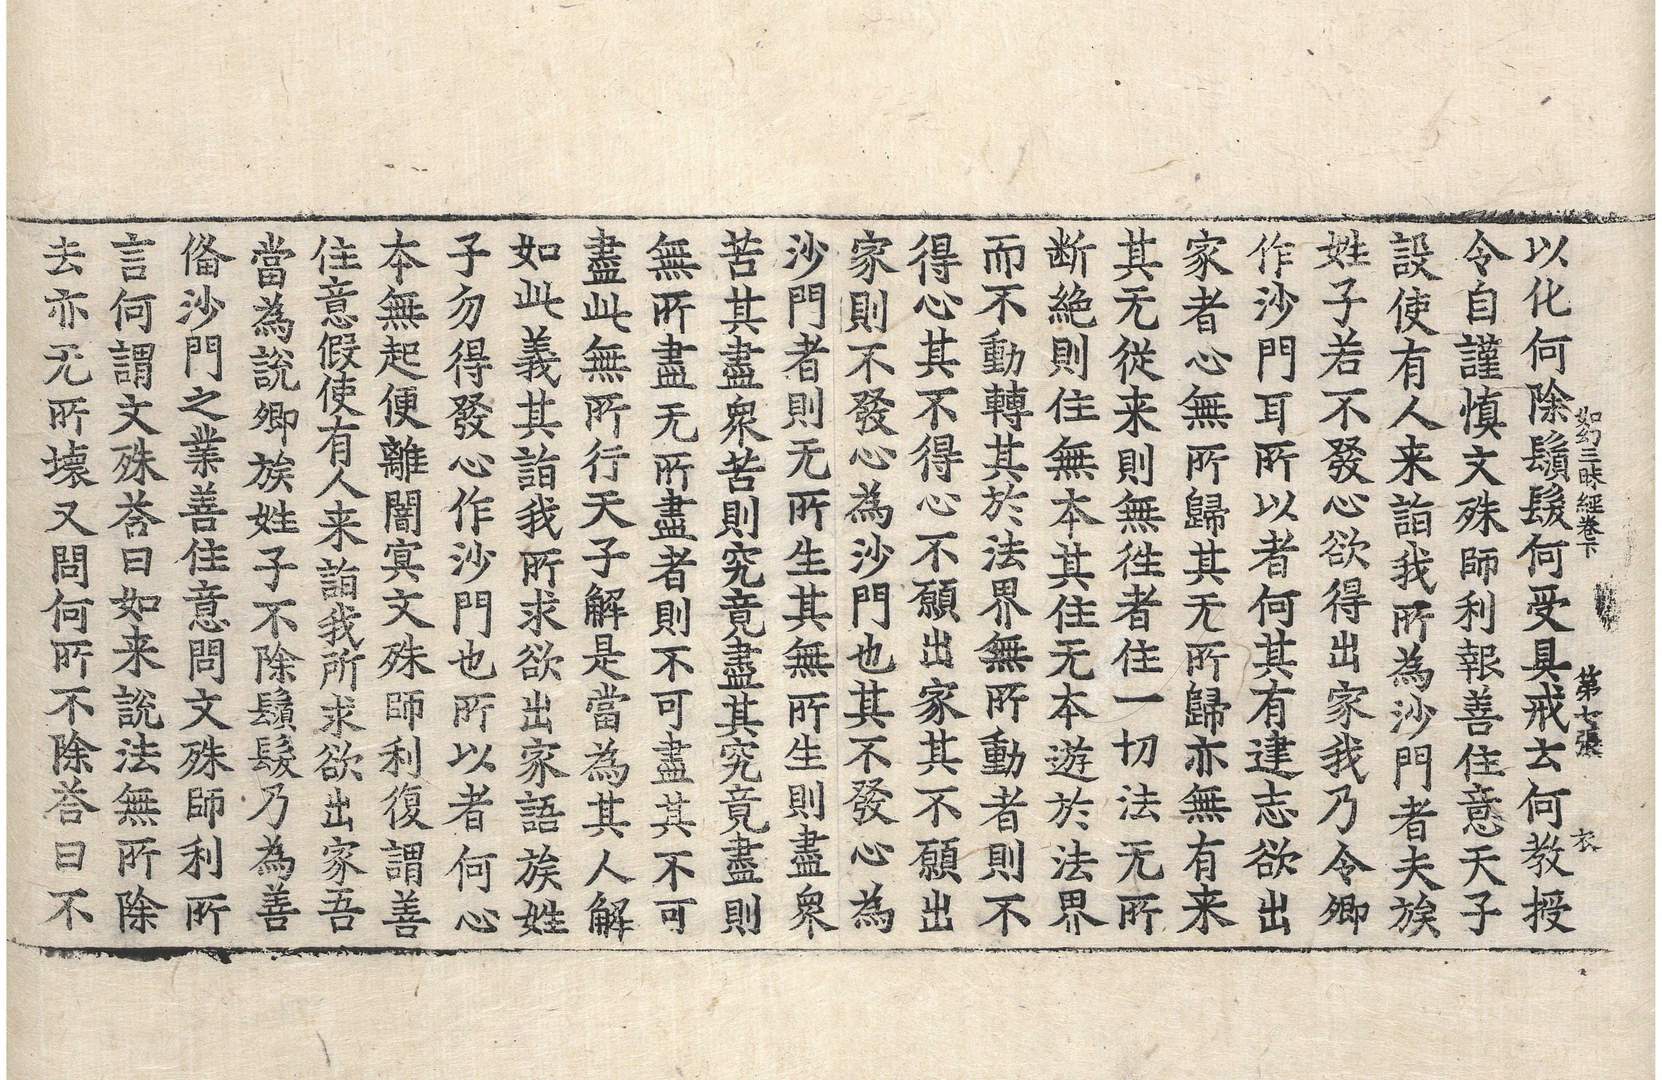 如幻三昧經卷下　第七張　衣
以化何除鬚髮何受具戒云何教授
令自謹慎文殊師利報善住意天子
設使有人来詣我所為沙門者夫族
姓子若不發心欲得出家我乃令卿
作沙門耳所以者何其有建志欲出
家者心無所歸其无所歸亦無有来
其无從来則無徃者住一切法无所
断絶則住無本其住无本遊於法界
而不動轉其於法界無所動者則不
得心其不得心不願出家其不願出
家則不發心為沙門也其不發心為
沙門者則无所生其無所生則盡衆
苦其盡衆苦則究竟盡其究竟盡則
無所盡无所盡者則不可盡其不可
盡此無所行天子解是當為其人解
如此義其詣我所求欲出家語族姓
子勿得發心作沙門也所以者何心
本無起便離闇冥文殊師利復謂善
住意假使有人来詣我所求欲出家吾
當為說卿族姓子不除鬚髮乃為善
俻沙門之業善住意問文殊師利所
言何謂文殊荅曰如来說法無所除
去亦无所壞又問何所不除荅曰不